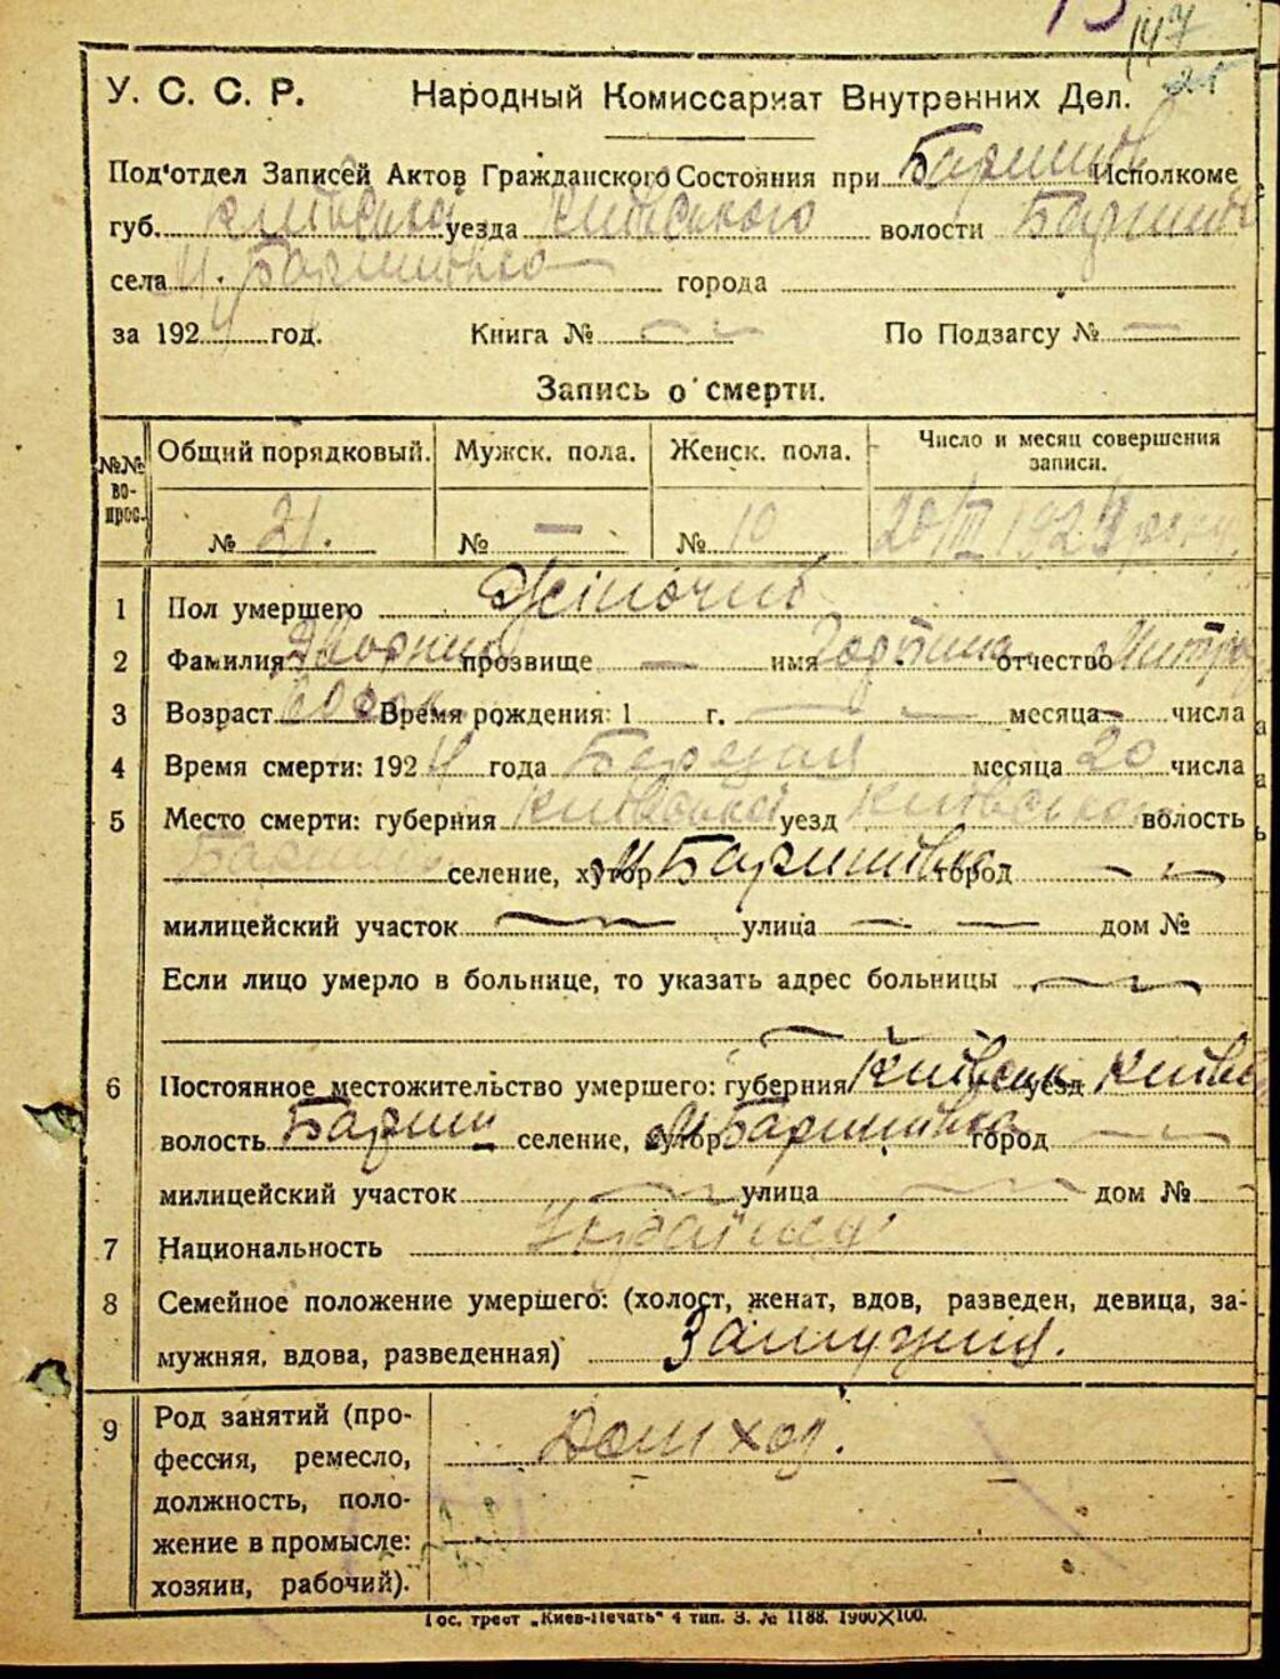 147
У. С. С. Р. Народный Комиссариат Внутренних Дел.
Под'отдел Записей Актов Гражданского Состояния при Баришів Исполкоме
губ. Київська уезда Київського волости Баришів
села М. Баришівка города
за 1924 год. Книга № По Подзагсу №
Запись о смерти.
№№ вопрос. Общий порядковый. Мужск. пола. Женск. пола. Число и месяц совершения записи.
№ 21. № — № 10 20/III 1924 року.
1 Пол умершего Жіночий
2 Фамилия прозвище — имя отчество
3 Возраст Время рождения: 1 г. — — месяца — числа
4 Время смерти: 1924 года Березня месяца 20 числа
5 Место смерти: губерния Київська уезд Київська волость
Баришів селение, хутор М Баришівка город
милицейский участок улица — — дом №
Если лицо умерло в больнице, то указать адрес больницы
6 Постоянное местожительство умершего: губерния Київськ уезд Київс
волость Бариш селение, хутор М Баришівка город
милицейский участок улица дом №
7 Национальность Українка
8 Семейное положение умершего: (холост, женат, вдов, разведен, девица, за-
мужняя, вдова, разведенная) Замужня.
9 Род занятий (про-
фессия, ремесло,
должность, поло-
жение в промысле:
хозяин, рабочий).
Дом хоз.
Гос. трест „Киев-Печать" 4 тип. З. № 1188. 1900×100.